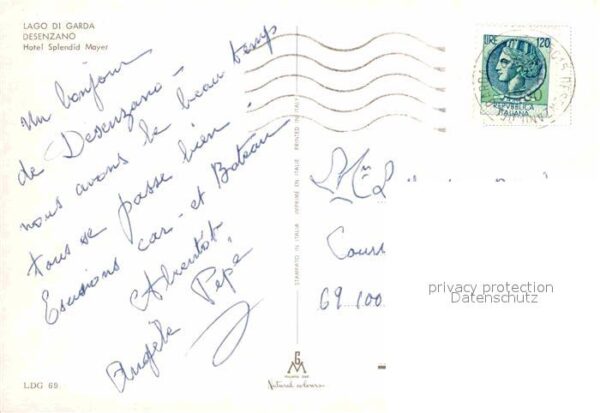 LAGO DI GARDA
DESENZANO
Hotel Splendid Mayer
Un bonjour
de Desenzano -
nous avons le beau temps
tous se passe bien.
Escusions car - et Bateau
Abientôt
Angèle Pépé
LDG 69
STAMPATO IN ITALIA IMPRIMÉ EN ITALIE PRINTED IN ITALY
GM
Natural colours
LIRE 120
REPUBBLICA
ITALIANA
Cour
69.100
privacy protection
Datenschutz